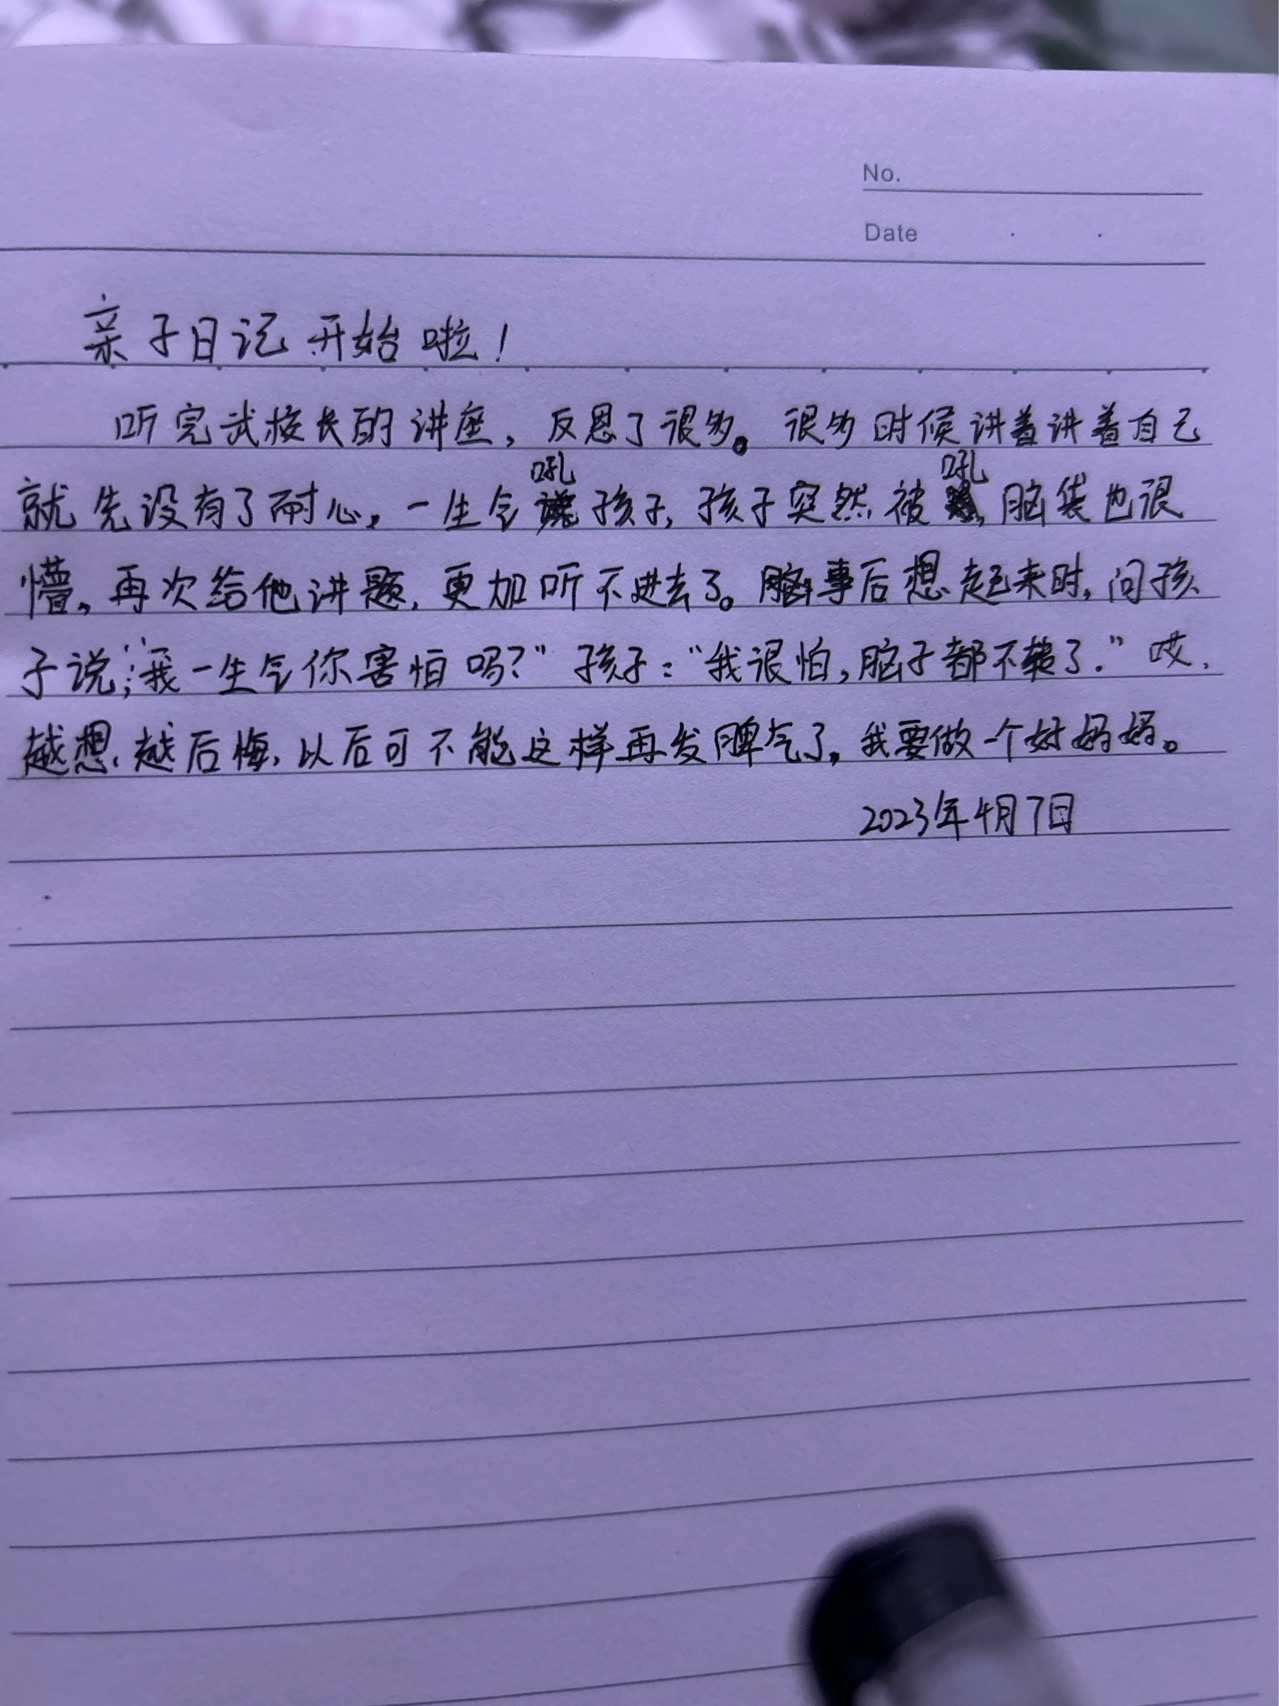 No.
Date
亲子日记开始啦！
听完武校长的讲座，反思了很多。很多时候讲着讲着自己
就先没有了耐心，一生气吼孩子，孩子突然被吼，脑袋也很
懵。再次给他讲题，更加听不进去了。事后想起来时，问孩
子说：“我一生气你害怕吗？”孩子：“我很怕，脑子都不转了．”哎，
越想，越后悔，以后可不能这样再发脾气了，我要做一个好妈妈。
2023年4月7日